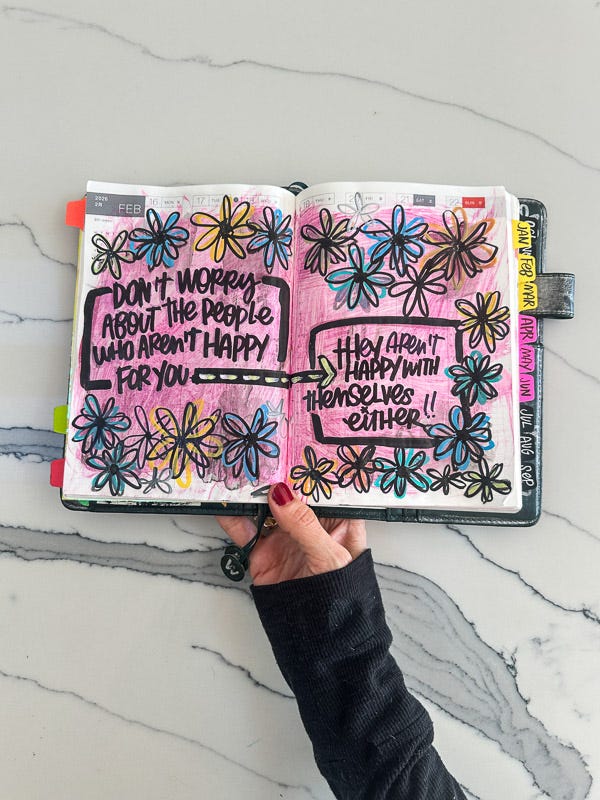 2026
2月
FEB
16 MON
17 TUE
18
19 THU
FRI
21 SAT
22 SUN
DON'T WORRY
ABOUT tHe PeOPLe
WHO AREN'T HAPPY
FOR YOU
tHey AREN'T
HAPPY WITH
tHemSeLVeS
eitHeR!!
JAN
FEB
MAR
APR
MAY
JUN
JUL
AUG
SEP